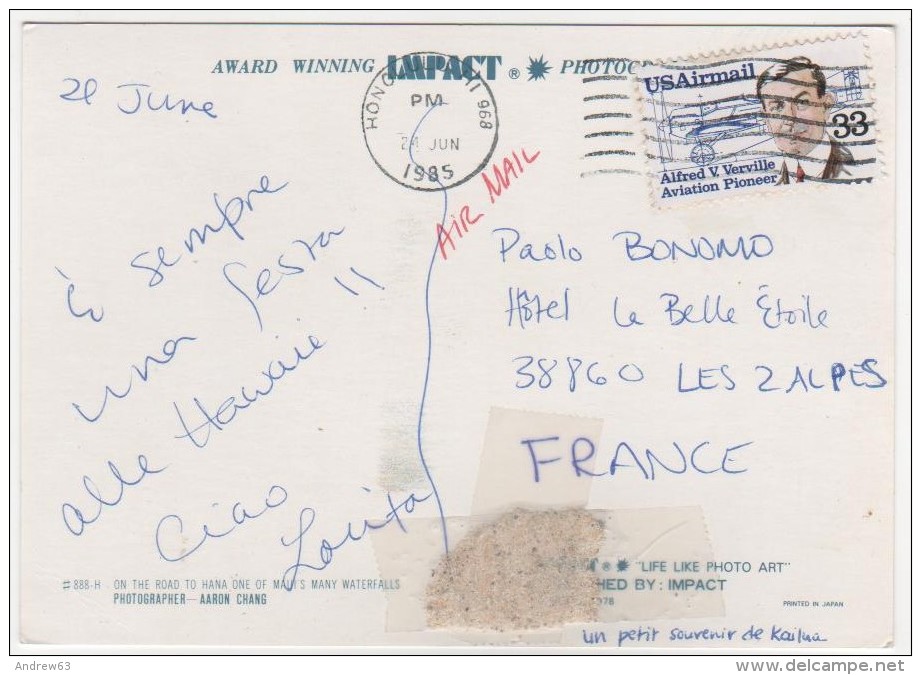 AWARD WINNING IMPACT ® PHOTOGR
21 June
HONOLULU, HI 968
PM
21 JUN
1985
USAirmail
33
Alfred V. Verville
Aviation Pioneer
AIR MAIL
è sempre
una festa
alle Hawaii !!
Ciao
Lolita
Paolo BONOMO
Hôtel La Belle Étoile
38860 LES 2 ALPES
FRANCE
#888-H - ON THE ROAD TO HANA ONE OF MAUI'S MANY WATERFALLS
PHOTOGRAPHER—AARON CHANG
® "LIFE LIKE PHOTO ART"
HED BY: IMPACT
1978
PRINTED IN JAPAN
un petit souvenir de Kailua
Andrew63
delcampe.net